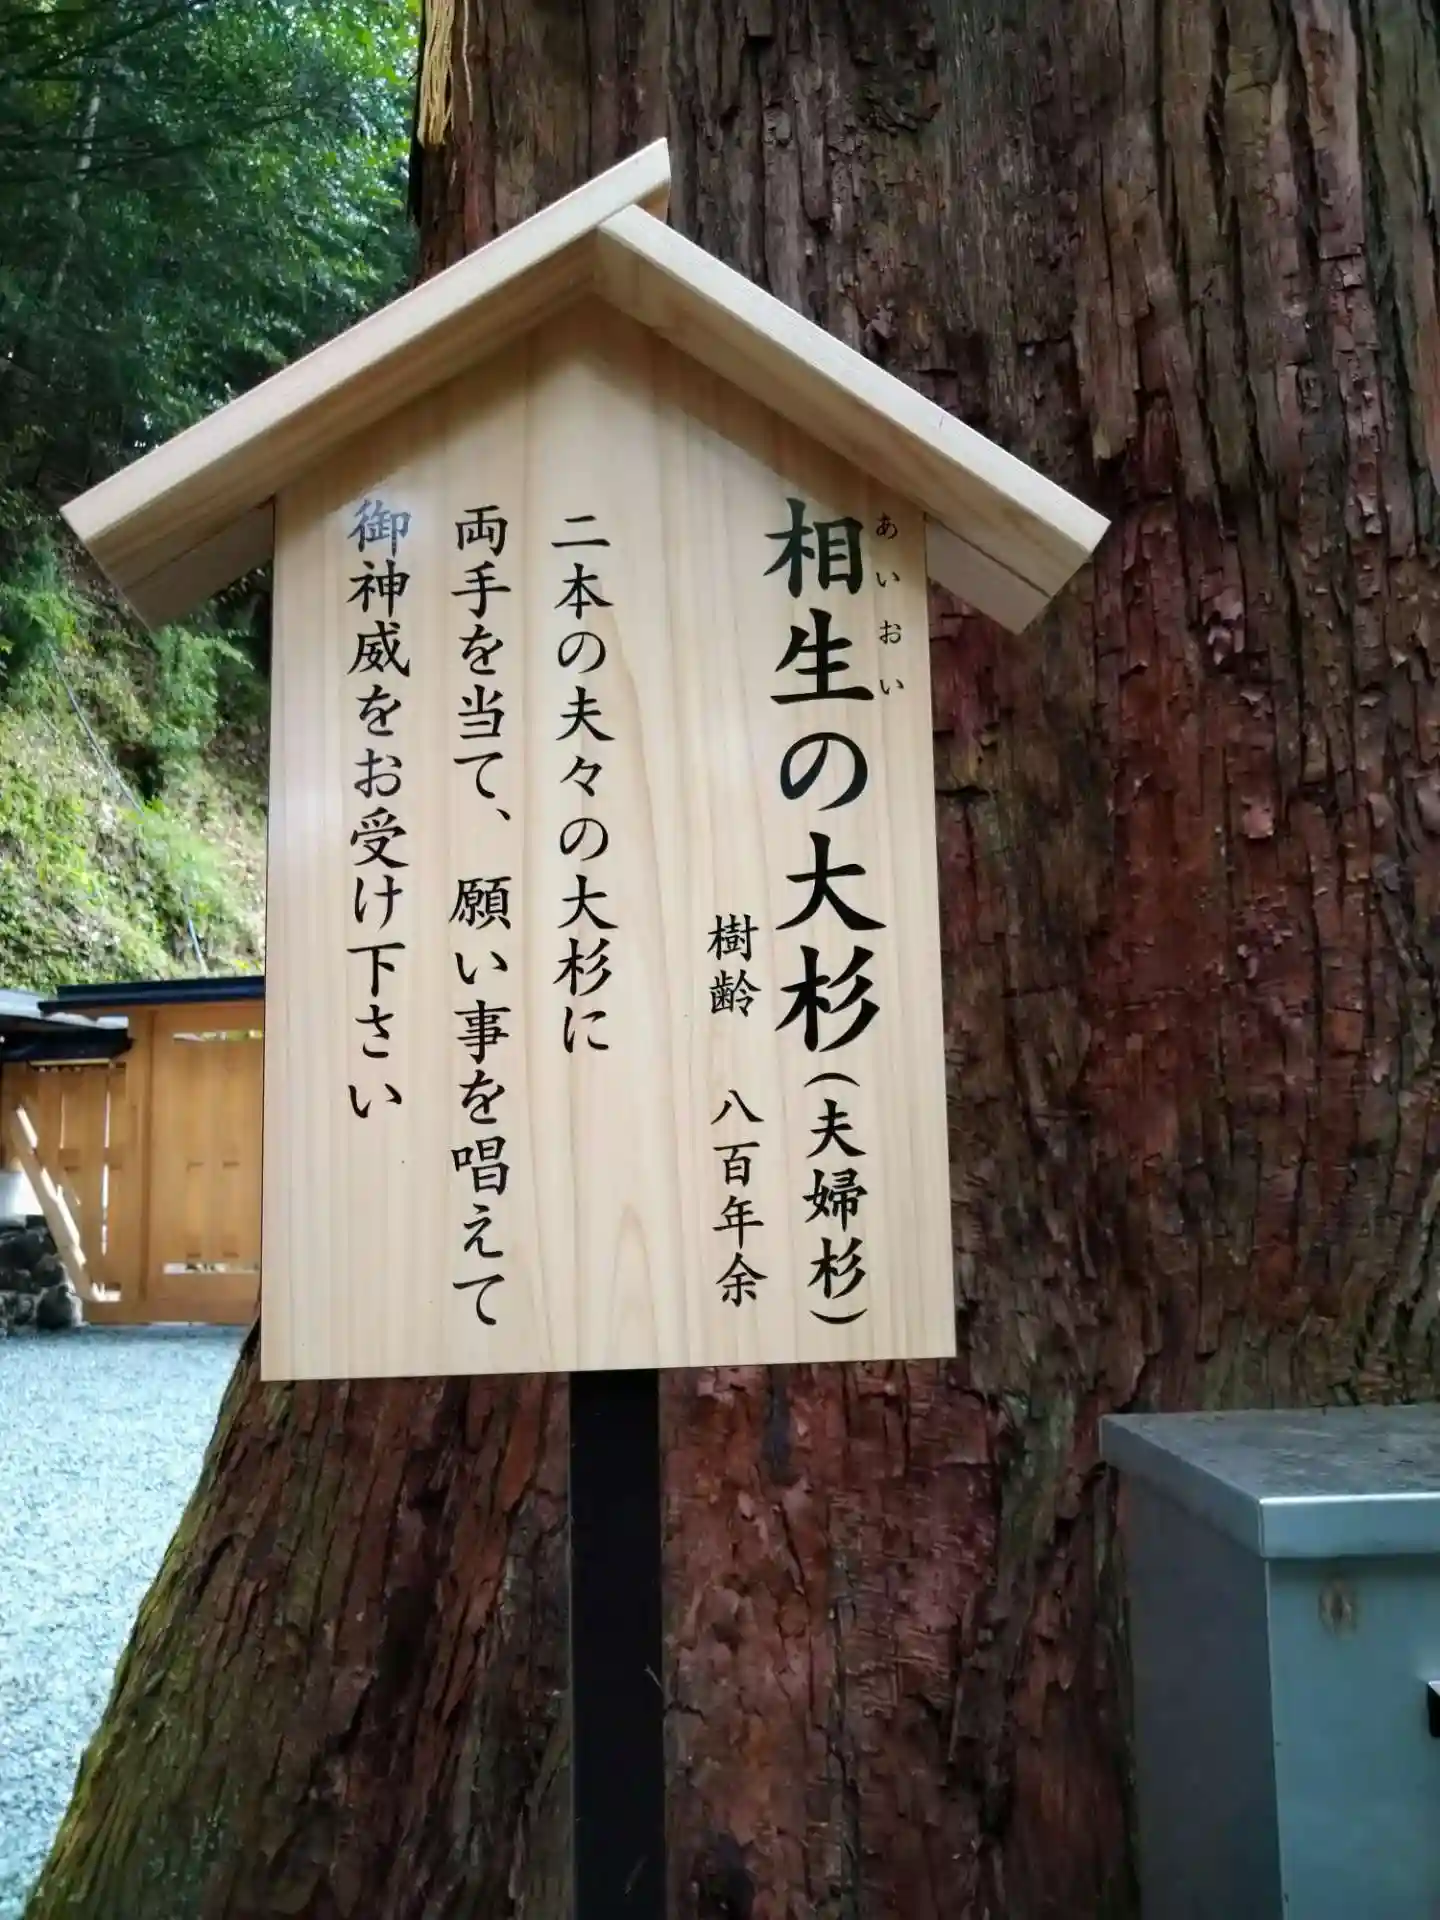 相生の大杉(夫婦杉)
あいおい
樹齢 八百年余
二本の夫々の大杉に
両手を当て、願い事を唱えて
御神威をお受け下さい